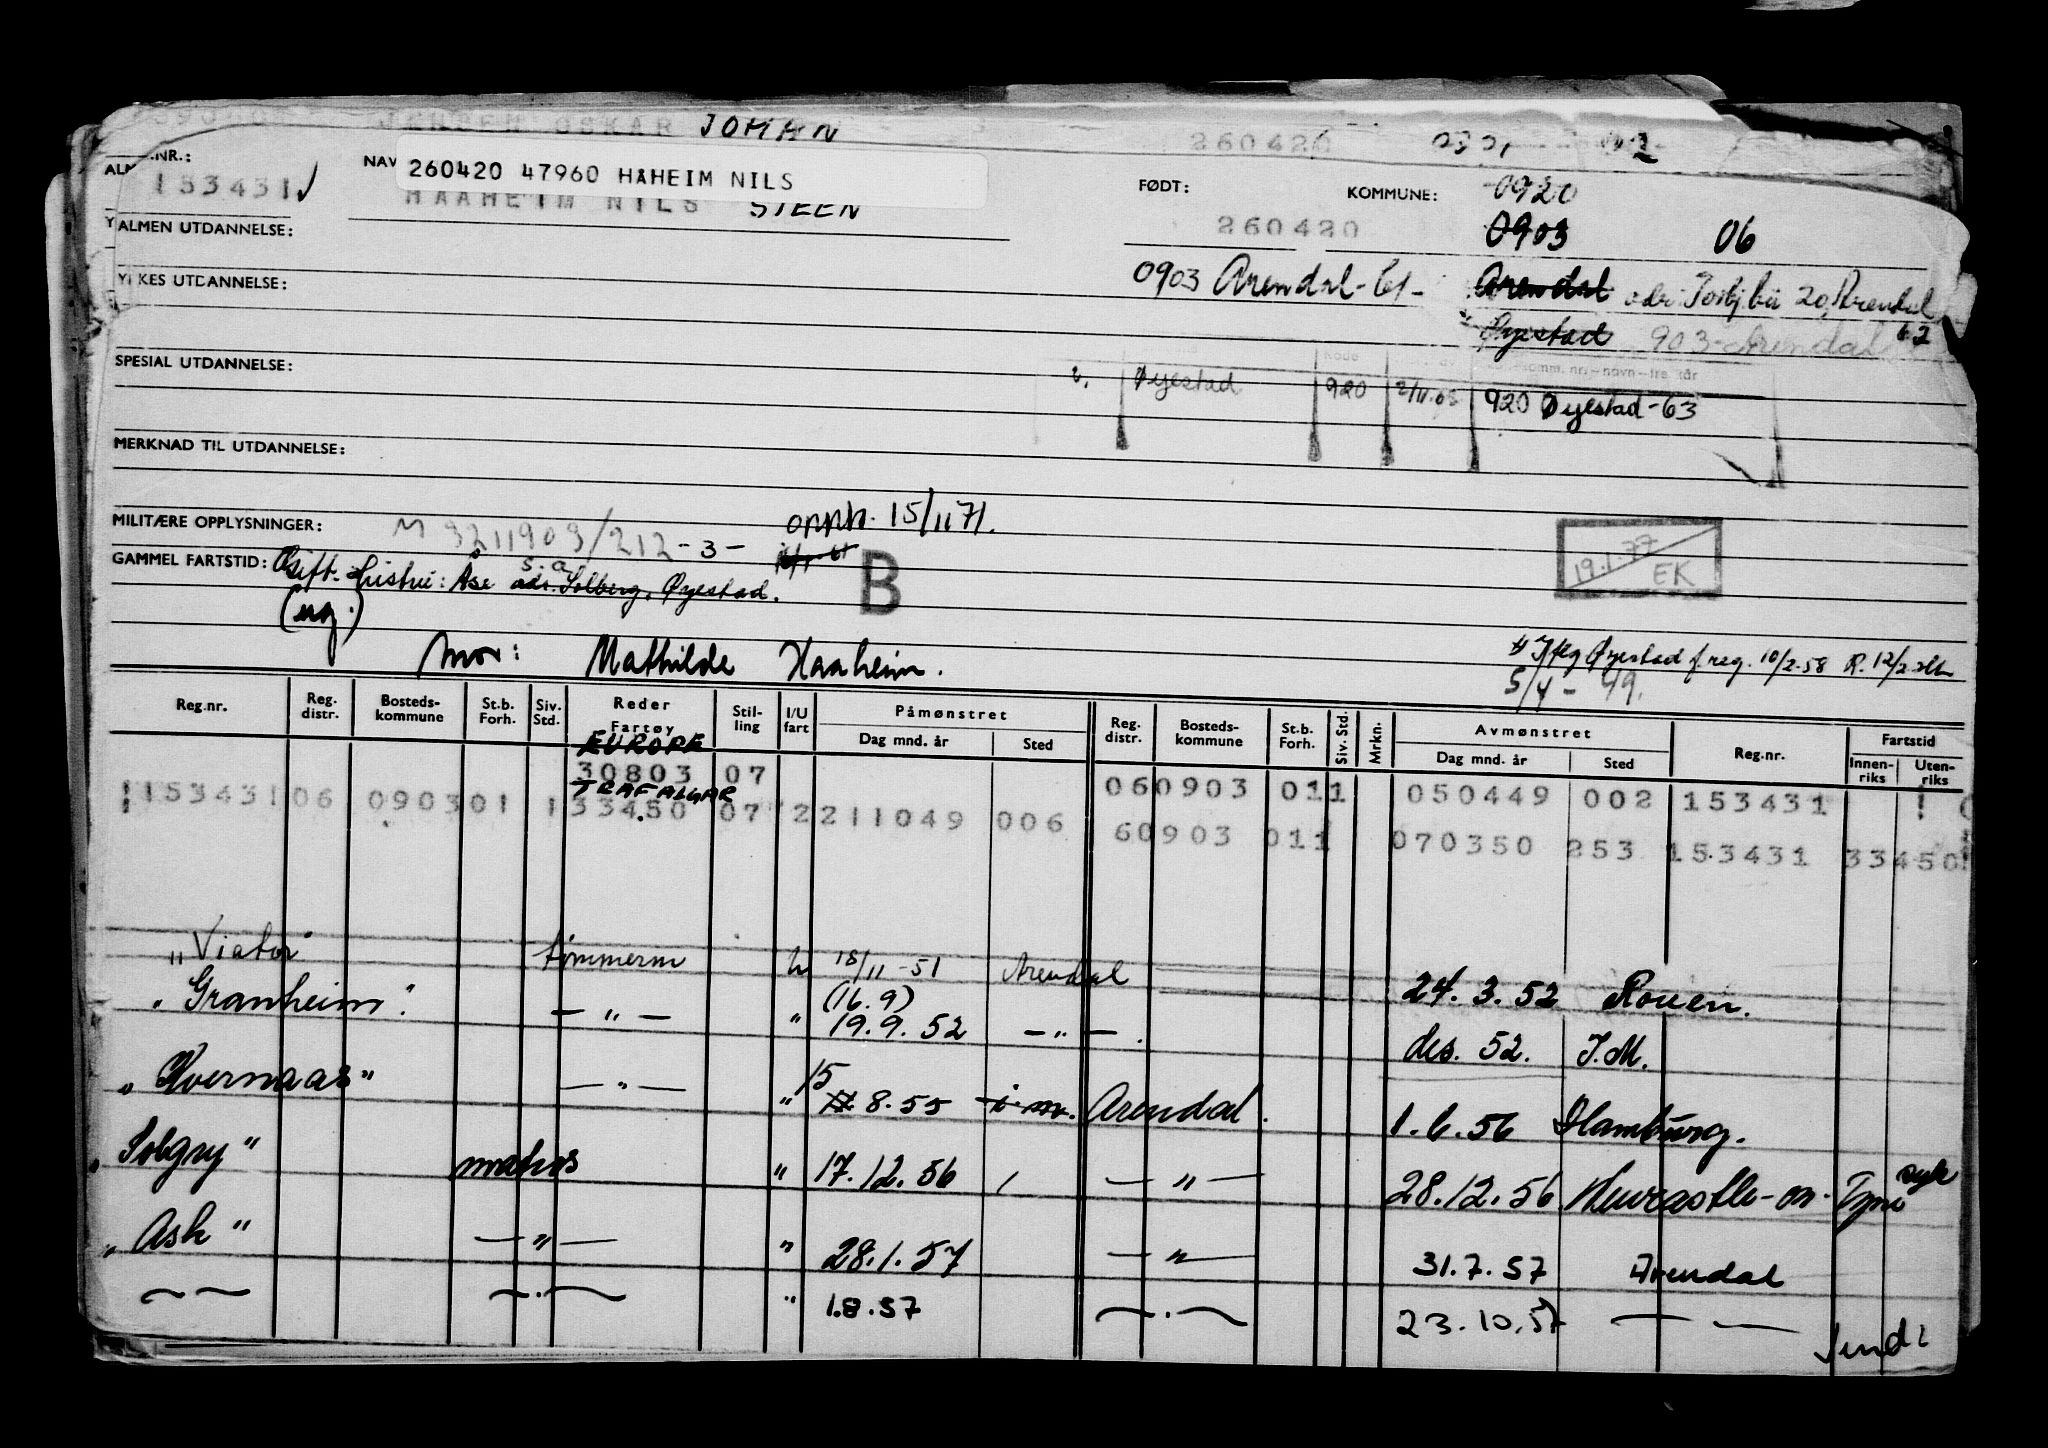 JENSEN OSKAR JOHAN 260420
ALM.NR.: NAV 260420 47960 HÅHEIM NILS FØDT: KOMMUNE: 0920
153431 HAAHEIM NILS STEEN 260420 0903 06
ALMEN UTDANNELSE:
0903 Arendal-61- Arendal adr. 20, Arendal
YRKES UTDANNELSE: 62
Øyestad 903-Arendal
SPESIAL UTDANNELSE: Øyestad 920 2/11-65 920 Øyestad-63
MERKNAD TIL UTDANNELSE:
MILITÆRE OPPLYSNINGER: M 3211903/212-3- opph. 15/11 71.
19.1.77 EK
GAMMEL FARTSTID: Gift. Hustru: Åse s.a. adr. Solberg, Øyestad. B
mor: Mathilde Haaheim. Øyestad f. reg. 10/2-58 R. 12/2
5/4-49.
Reg.nr. Reg. distr. Bosteds-kommune St.b. Forh. Siv. Std. Reder Fartøy Stil-ling I/U fart Påmønstret Dag mnd. år Sted Reg. distr. Bosteds-kommune St.b. Forh. Siv. Std. Mrkn. Avmønstret Dag mnd. år Sted Reg.nr. Fartstid Innen-riks Uten-riks
EUROPE
30803 07 060903 011 050449 002 153431
TRAFALGAR
153431 06 0903 01 1 33450 07 2 211049 006 60903 011 070350 253 153431 33450
"Viator" tømmerm u 18/11-51 Arendal 24.3.52 Rouen.
"Granheim". — " — " (16.9) 19.9.52 — " —. des. 52. I.M.
"Kvernaas" — " — " 15 8.55 i.m. Arendal. 1.6.56 Hamburg.
"Solgry" matros " 17.12.56 — " — 28.12.56 Newcastle-on-Tyne syk
"Ask" — " — " 28.1.57 — " — 31.7.57 Arendal
— — — " — " 1.8.57 — " — 23.10.57 — —